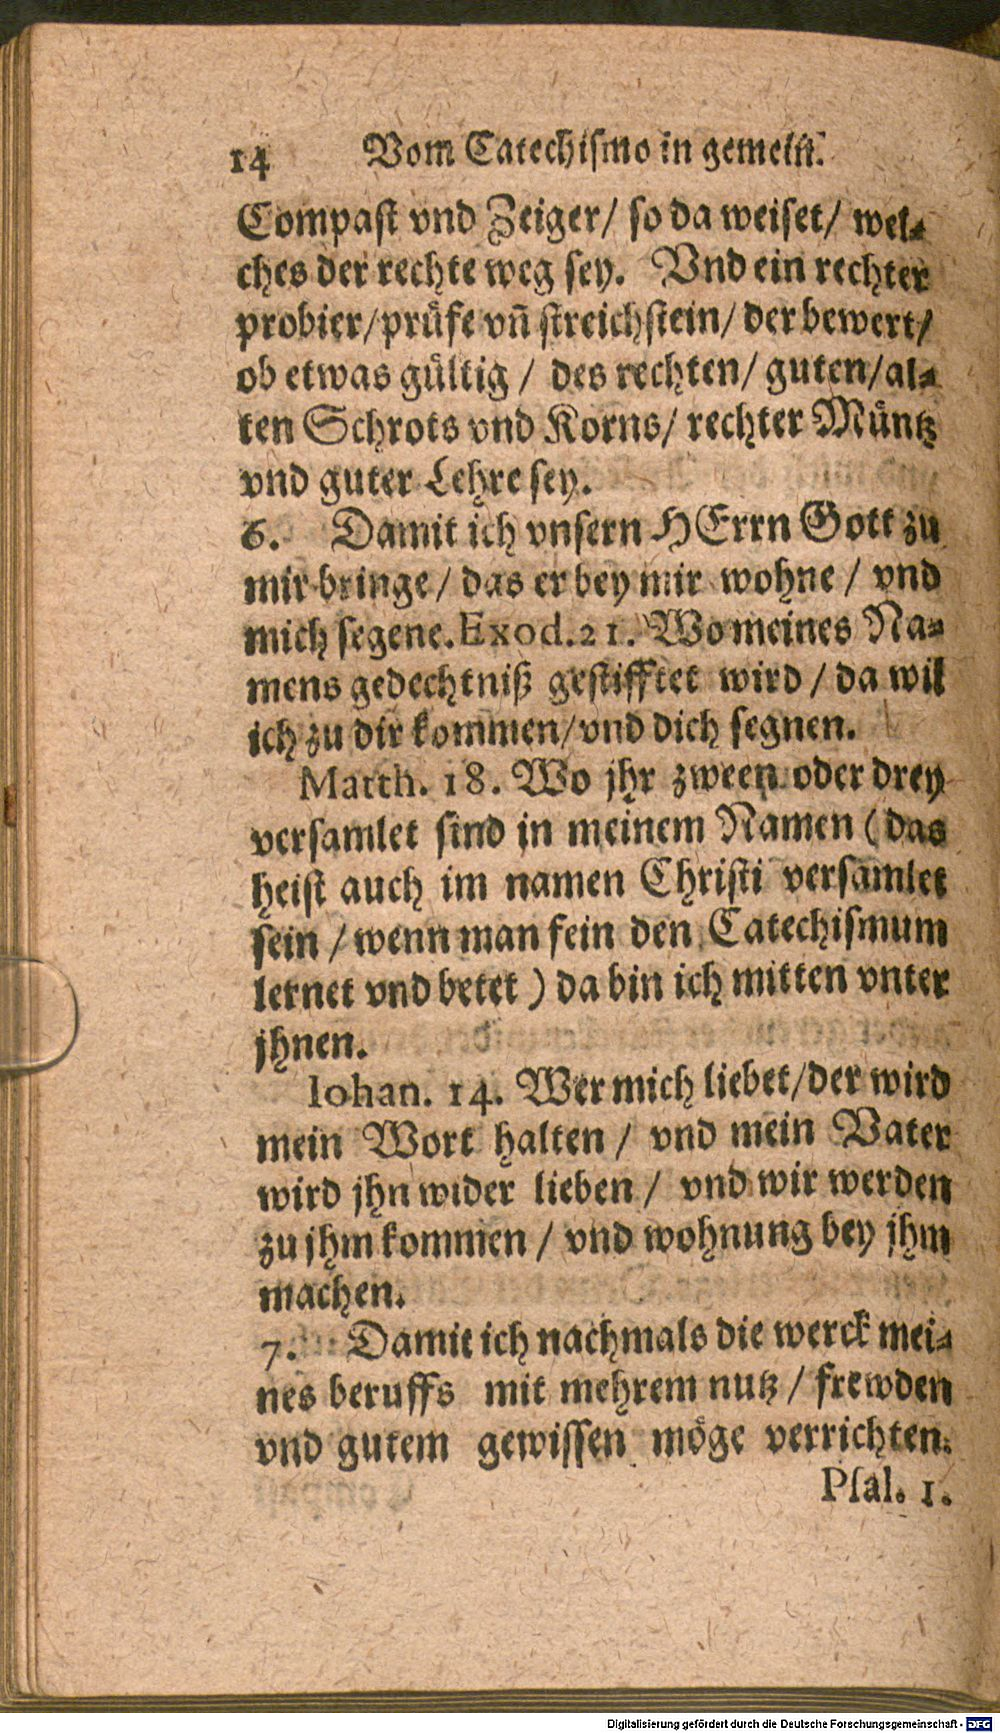 14 Vom Catechiſmo in gemein.
Compaſt vnd Zeiger/ ſo da weiſet/ wel⸗
ches der rechte weg ſey. Vnd ein rechter
probier/pruͤfe vñ ſtreichſtein/ der bewert/
ob etwas guͤltig / des rechten/ guten/al⸗
ten Schrots vnd Korns/ rechter Muͤntz
vnd guter Lehre ſey.
6. Damit ich vnſern HErrn Gott zu
mir bringe / das er bey mir wohne / vnd
mich ſegene. Exod. 21. Wo meines Na⸗
mens gedechtniß geſtifftet wird / da wil
ich zu dir kommen/vnd dich ſegnen.
Matth. 18. Wo jhr zween oder drey
verſamlet ſind in meinem Namen ( das
heiſt auch im namen Chriſti verſamlet
ſein / wenn man fein den Catechiſmum
lernet vnd betet ) da bin ich mitten vnter
jhnen.
Iohan. 14. Wer mich liebet/der wird
mein Wort halten / vnd mein Vater
wird jhn wider lieben / vnd wir werden
zu jhm kommen / vnd wohnung bey jhm
machen.
7. Damit ich nachmals die werck mei⸗
nes beruffs mit mehrem nutz / frewden
vnd gutem gewiſſen moͤge verrichten.
Pſal. 1.
Digitalisierung gefördert durch die Deutsche Forschungsgemeinschaft - DFG